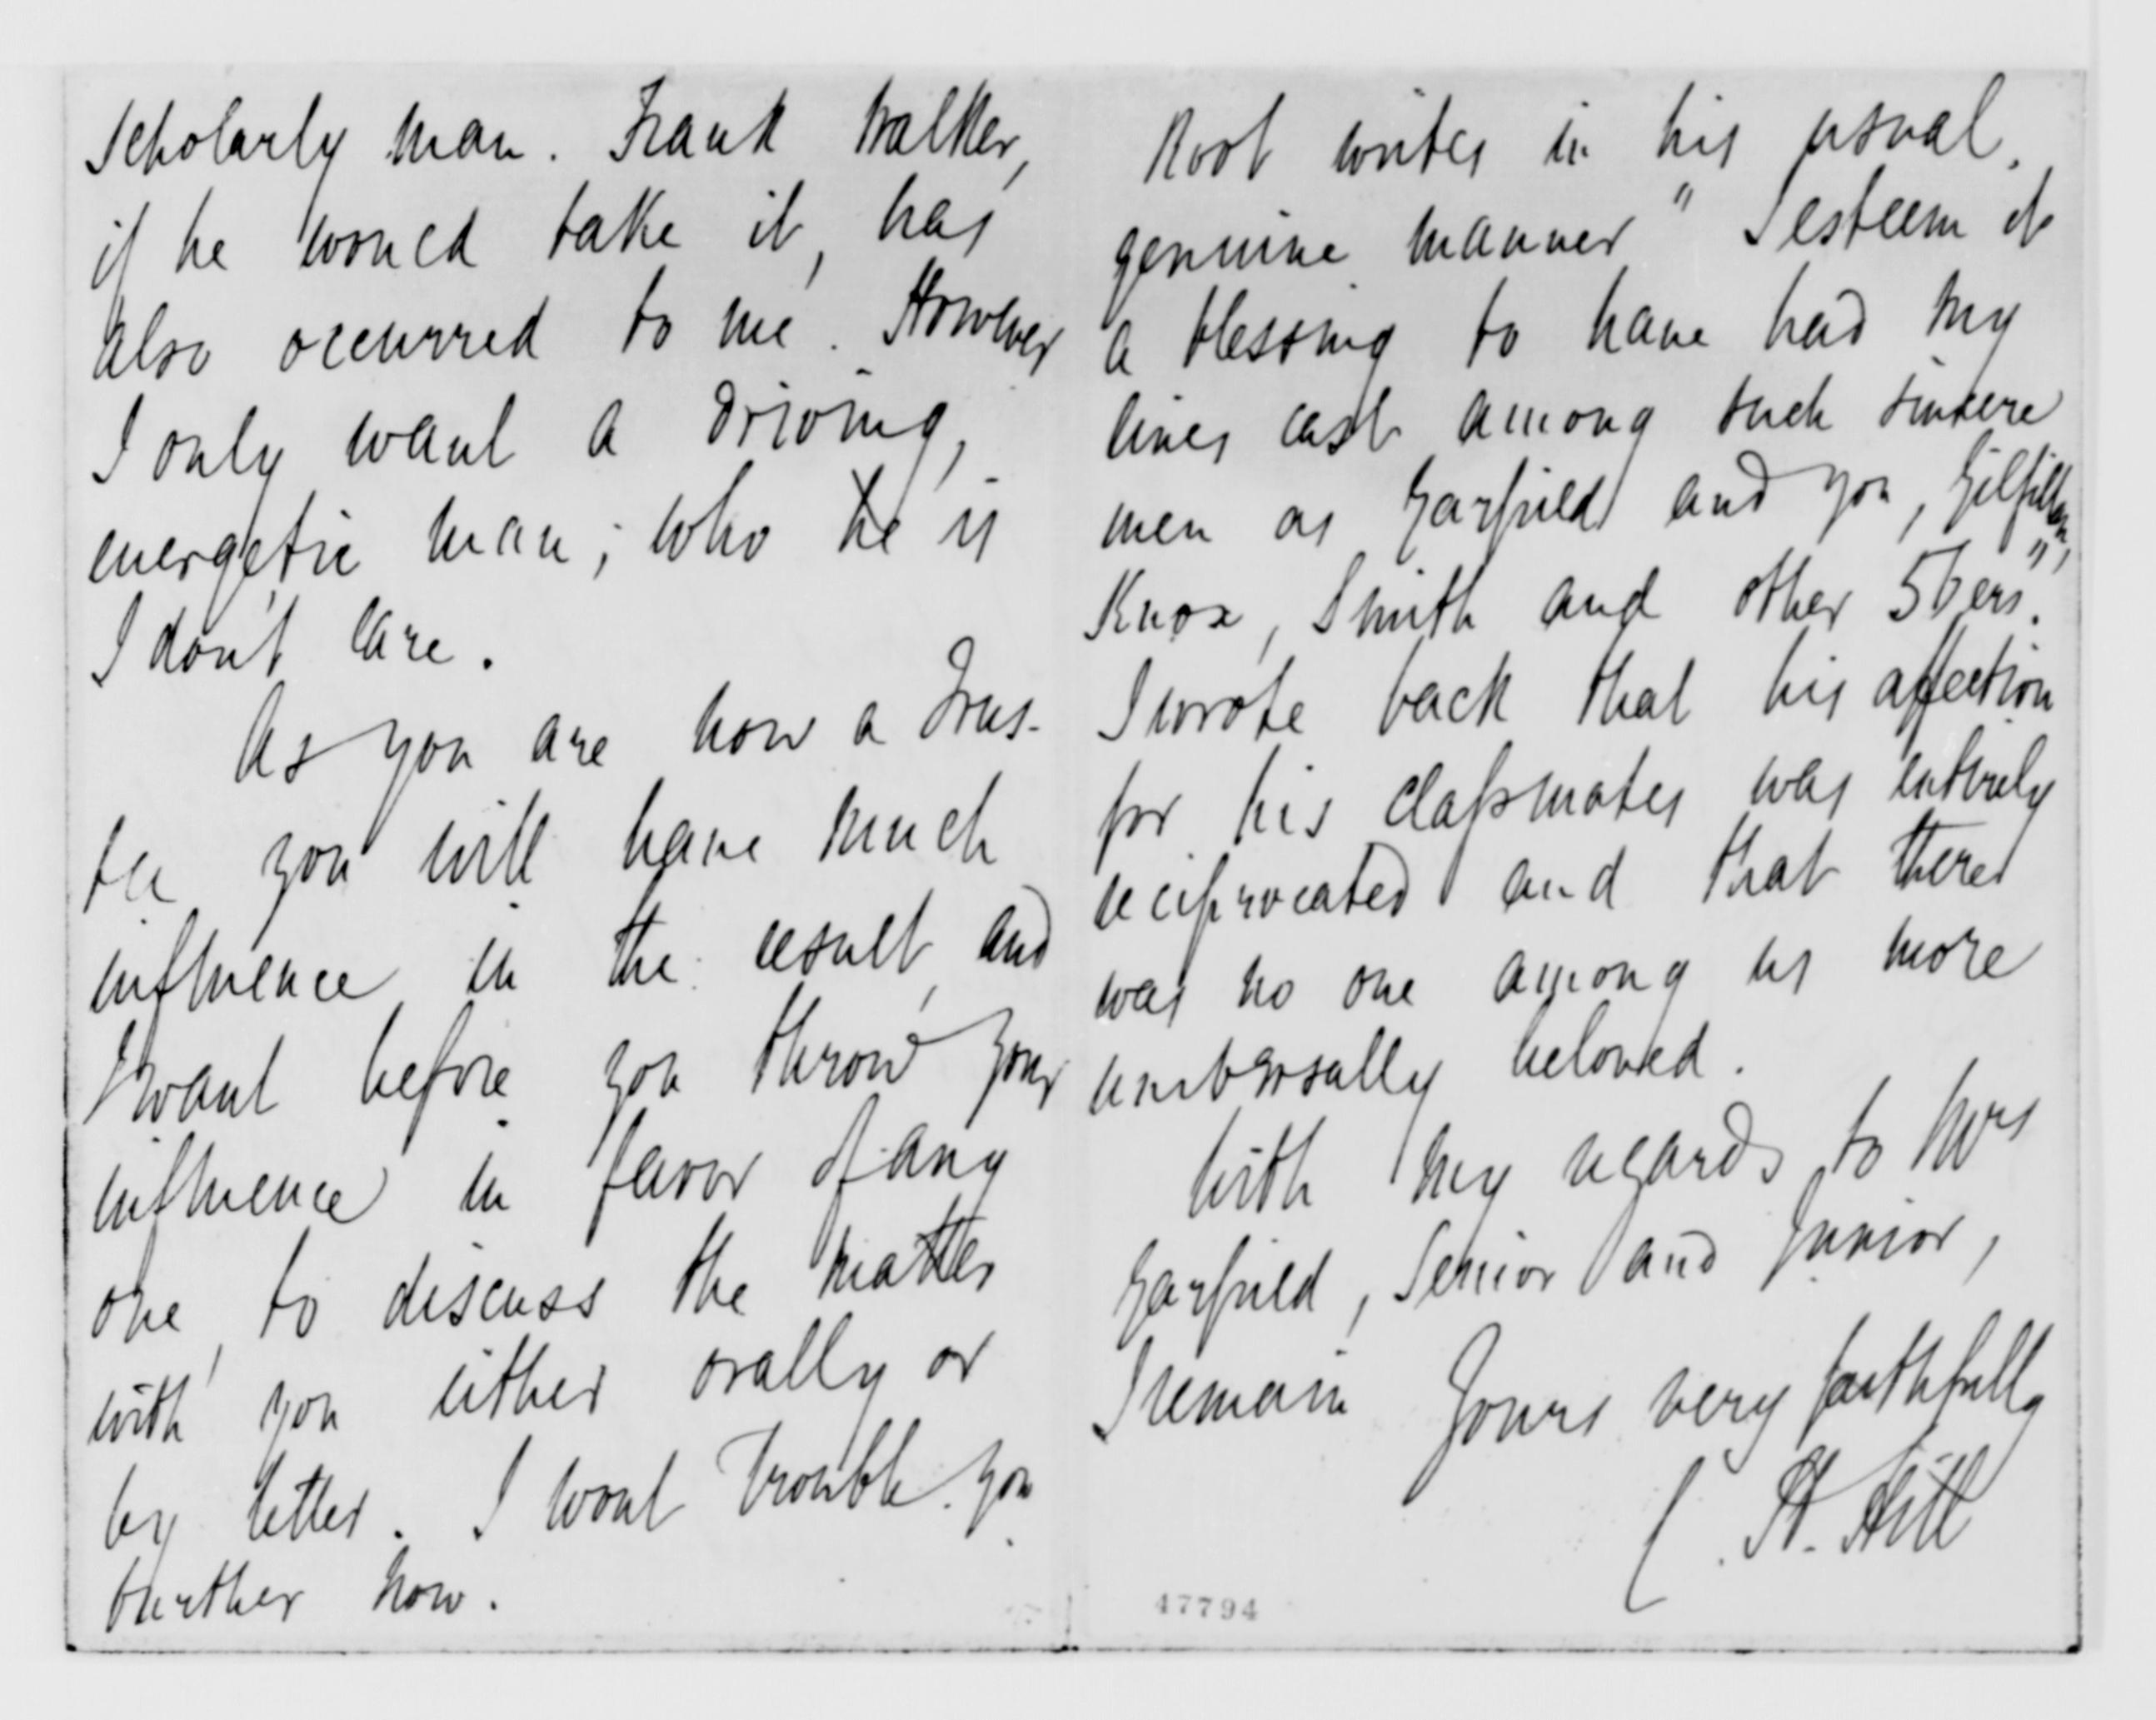 scholarly man. Frank Walker,
if he would take it, has
also occurred to me. However
I only want a driving,
energetic man; who he is
I don't care.
As you are now a Trus-
tee you will have much
influence in the result, and
I want before you throw your
influence in favor of any
one, to discuss the matter
with you either orally or
by letter. I wont trouble you
further now.
Root writes in his usual
genuine manner "I esteem it
a blessing to have had my
lines cast among such sincere
men as Garfield and you, Gilfillan,
Knox, Smith and other 56ers".
I wrote back that his affection
for his classmates was entirely
reciprocated and that there
was no one among us more
universally beloved.
With my regards to Mrs
Garfield, Senior and Junior,
I remain Yours very faithfully
C. H. Hill
47794